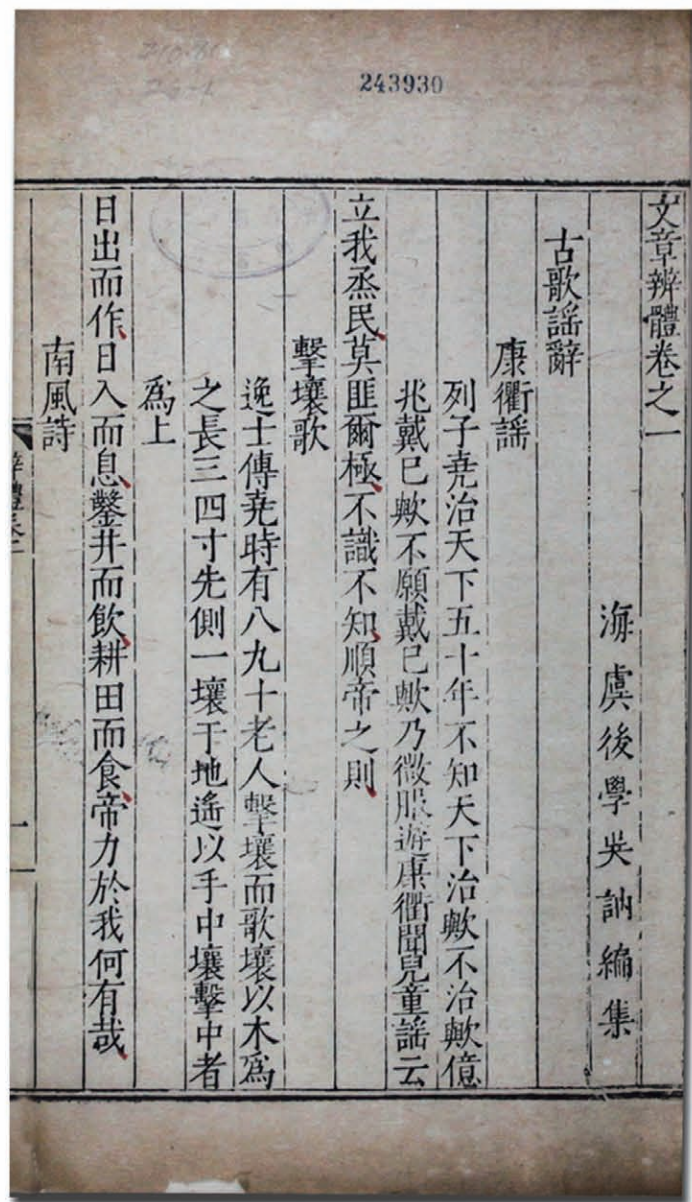 243930
文章辨體卷之一
海虞後學吳訥編集
古歌謡辭
康衢謡
列子堯治天下五十年不知天下治歟不治歟億
兆戴已歟不願戴已歟乃微服遊康衢聞兒童謡云
立我烝民莫匪爾極不識不知順帝之則
擊壤歌
逸士傳堯時有八九十老人擊壤而歌壤以木爲
之長三四寸先側一壤于地遙以手中壤擊中者
爲上
日出而作日入而息鑿井而飲耕田而食帝力於我何有哉
南風詩
一